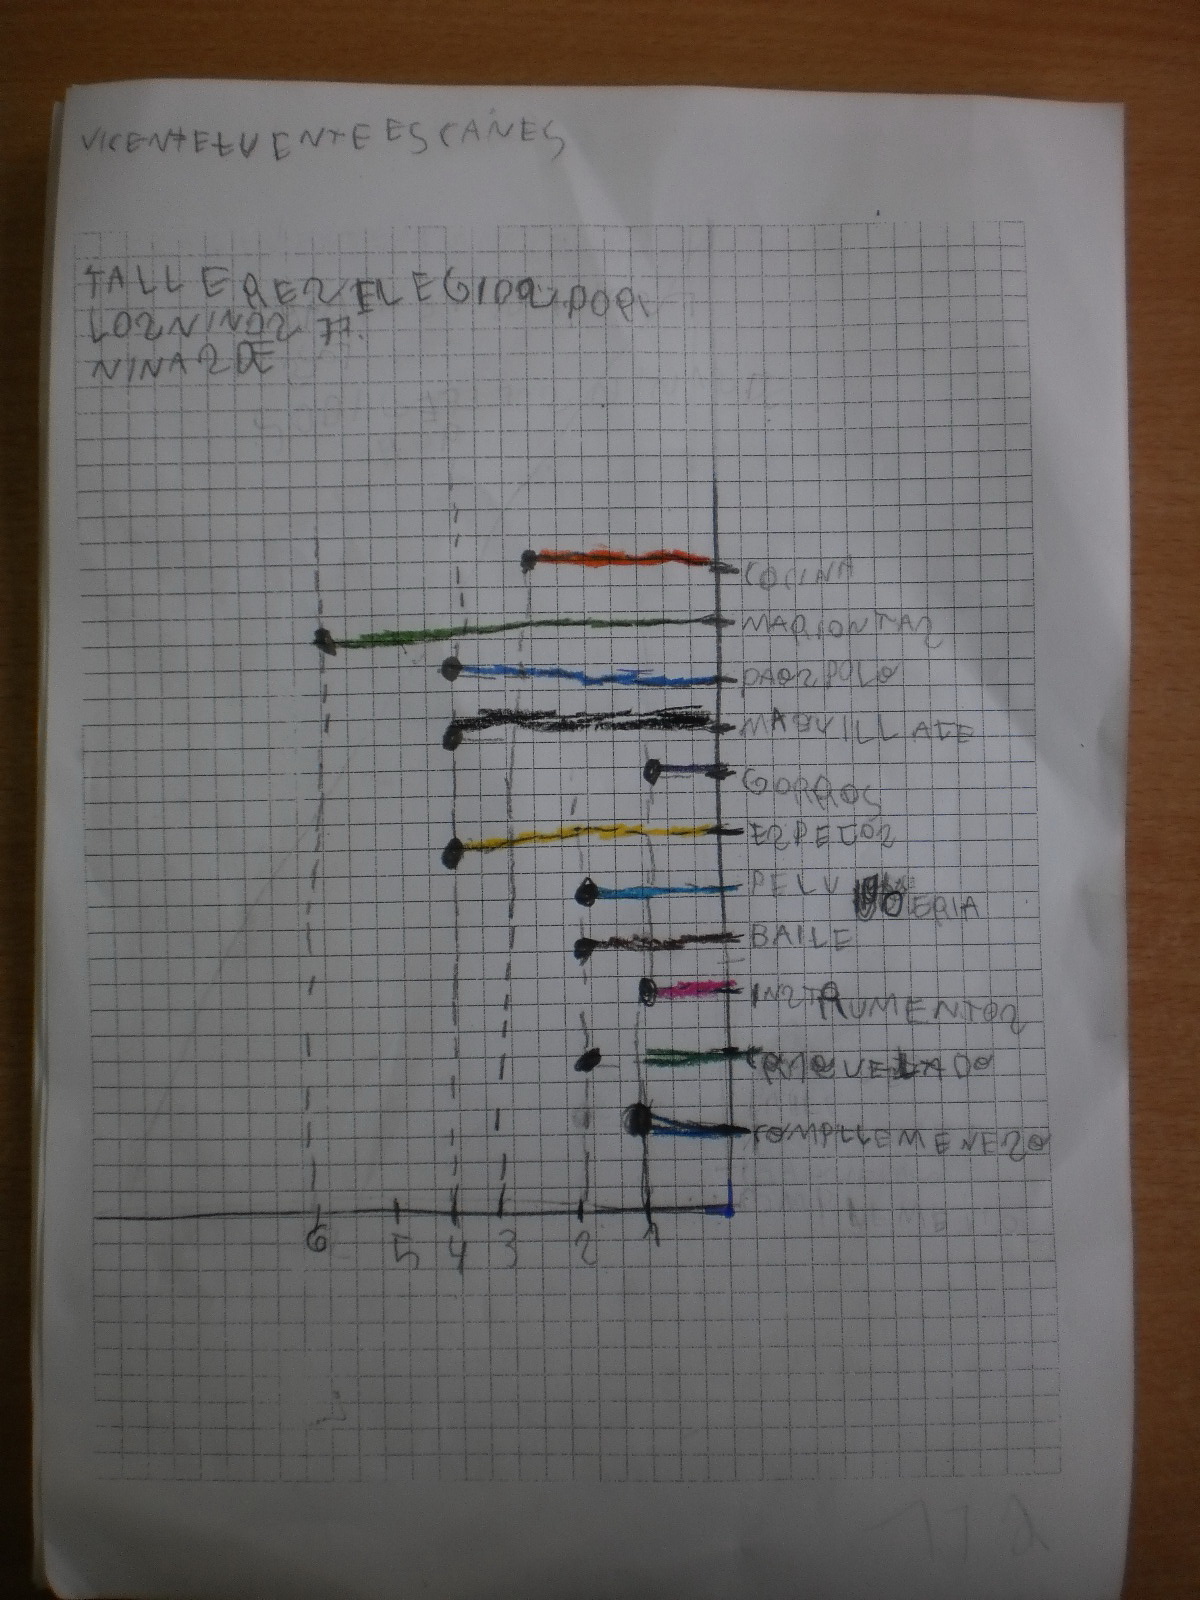 VICENTE FUENTE ESCAÑES
TALLERES ELEGIDOS POR
LOS NINOS 77.
NINAS DE
COCINA
MARIONTAS
PAOSPOLO
MAQUILLAJE
GORROS
ESPEJOS
PELU
ERIA
BAILE
INSTRUMENTOS
COMPLLEMENESO
6 5 4 3 2 1